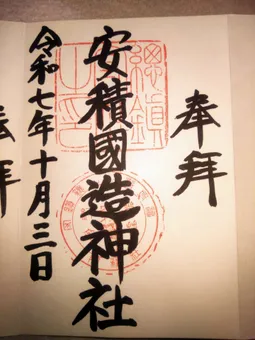 奉拜
安積國造神社
令和七年十月三日
總鎮